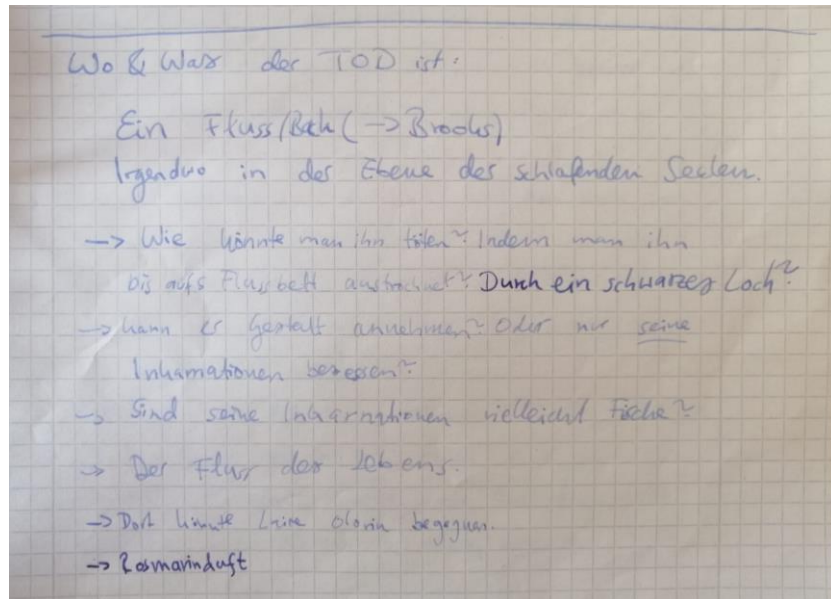 Wo & Was der TOD ist:
Ein Fluss/Bach (→ Brooks)
Irgendwo in der Ebene der schlafenden Seelen.
→ Wie könnte man ihn töten? Indem man ihn
bis aufs Flussbett austrocknet? Durch ein schwarzes Loch?
→ kann er Gestalt annehmen? Oder nur seine
Inkarnationen besessen?
→ Sind seine Inkarnationen vielleicht Fische?
→ Der Fluss des Lebens.
→ Dort könnte Olorin begegnen.
→ Rosmarinduft